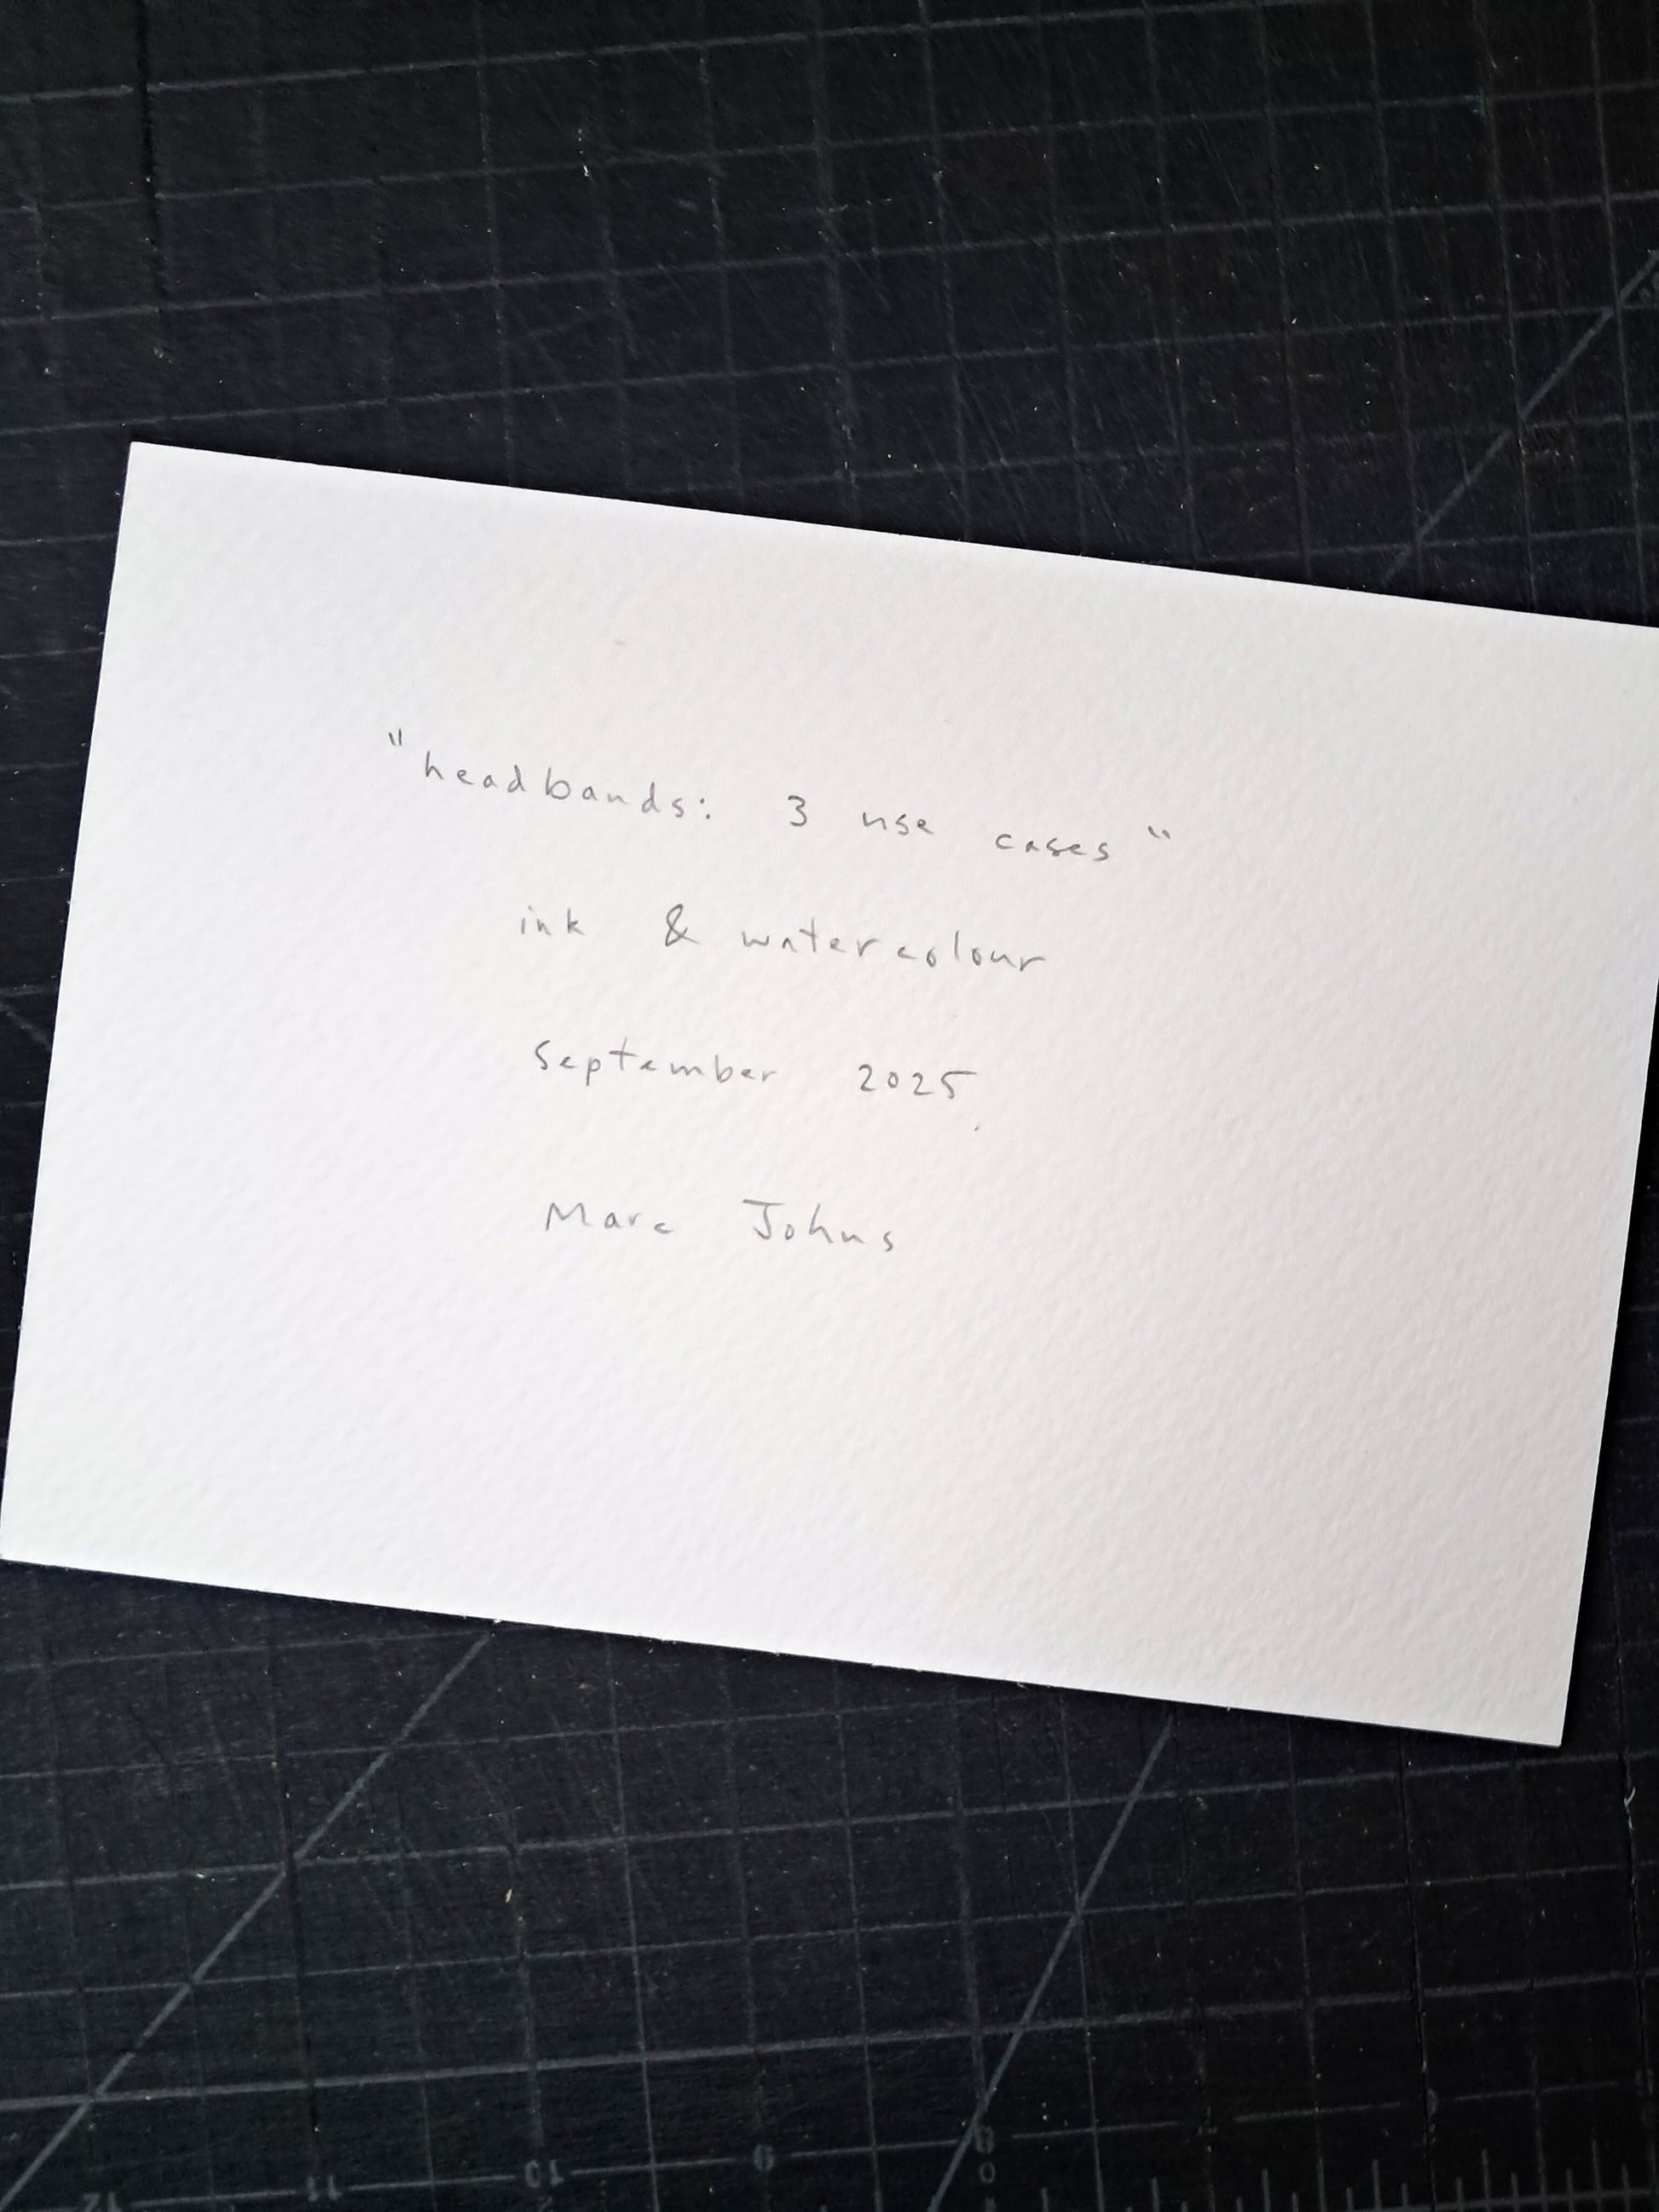 "headbands: 3 use cases"
ink & watercolour
September 2025
Marc Johns
12 11 10 9 8
0